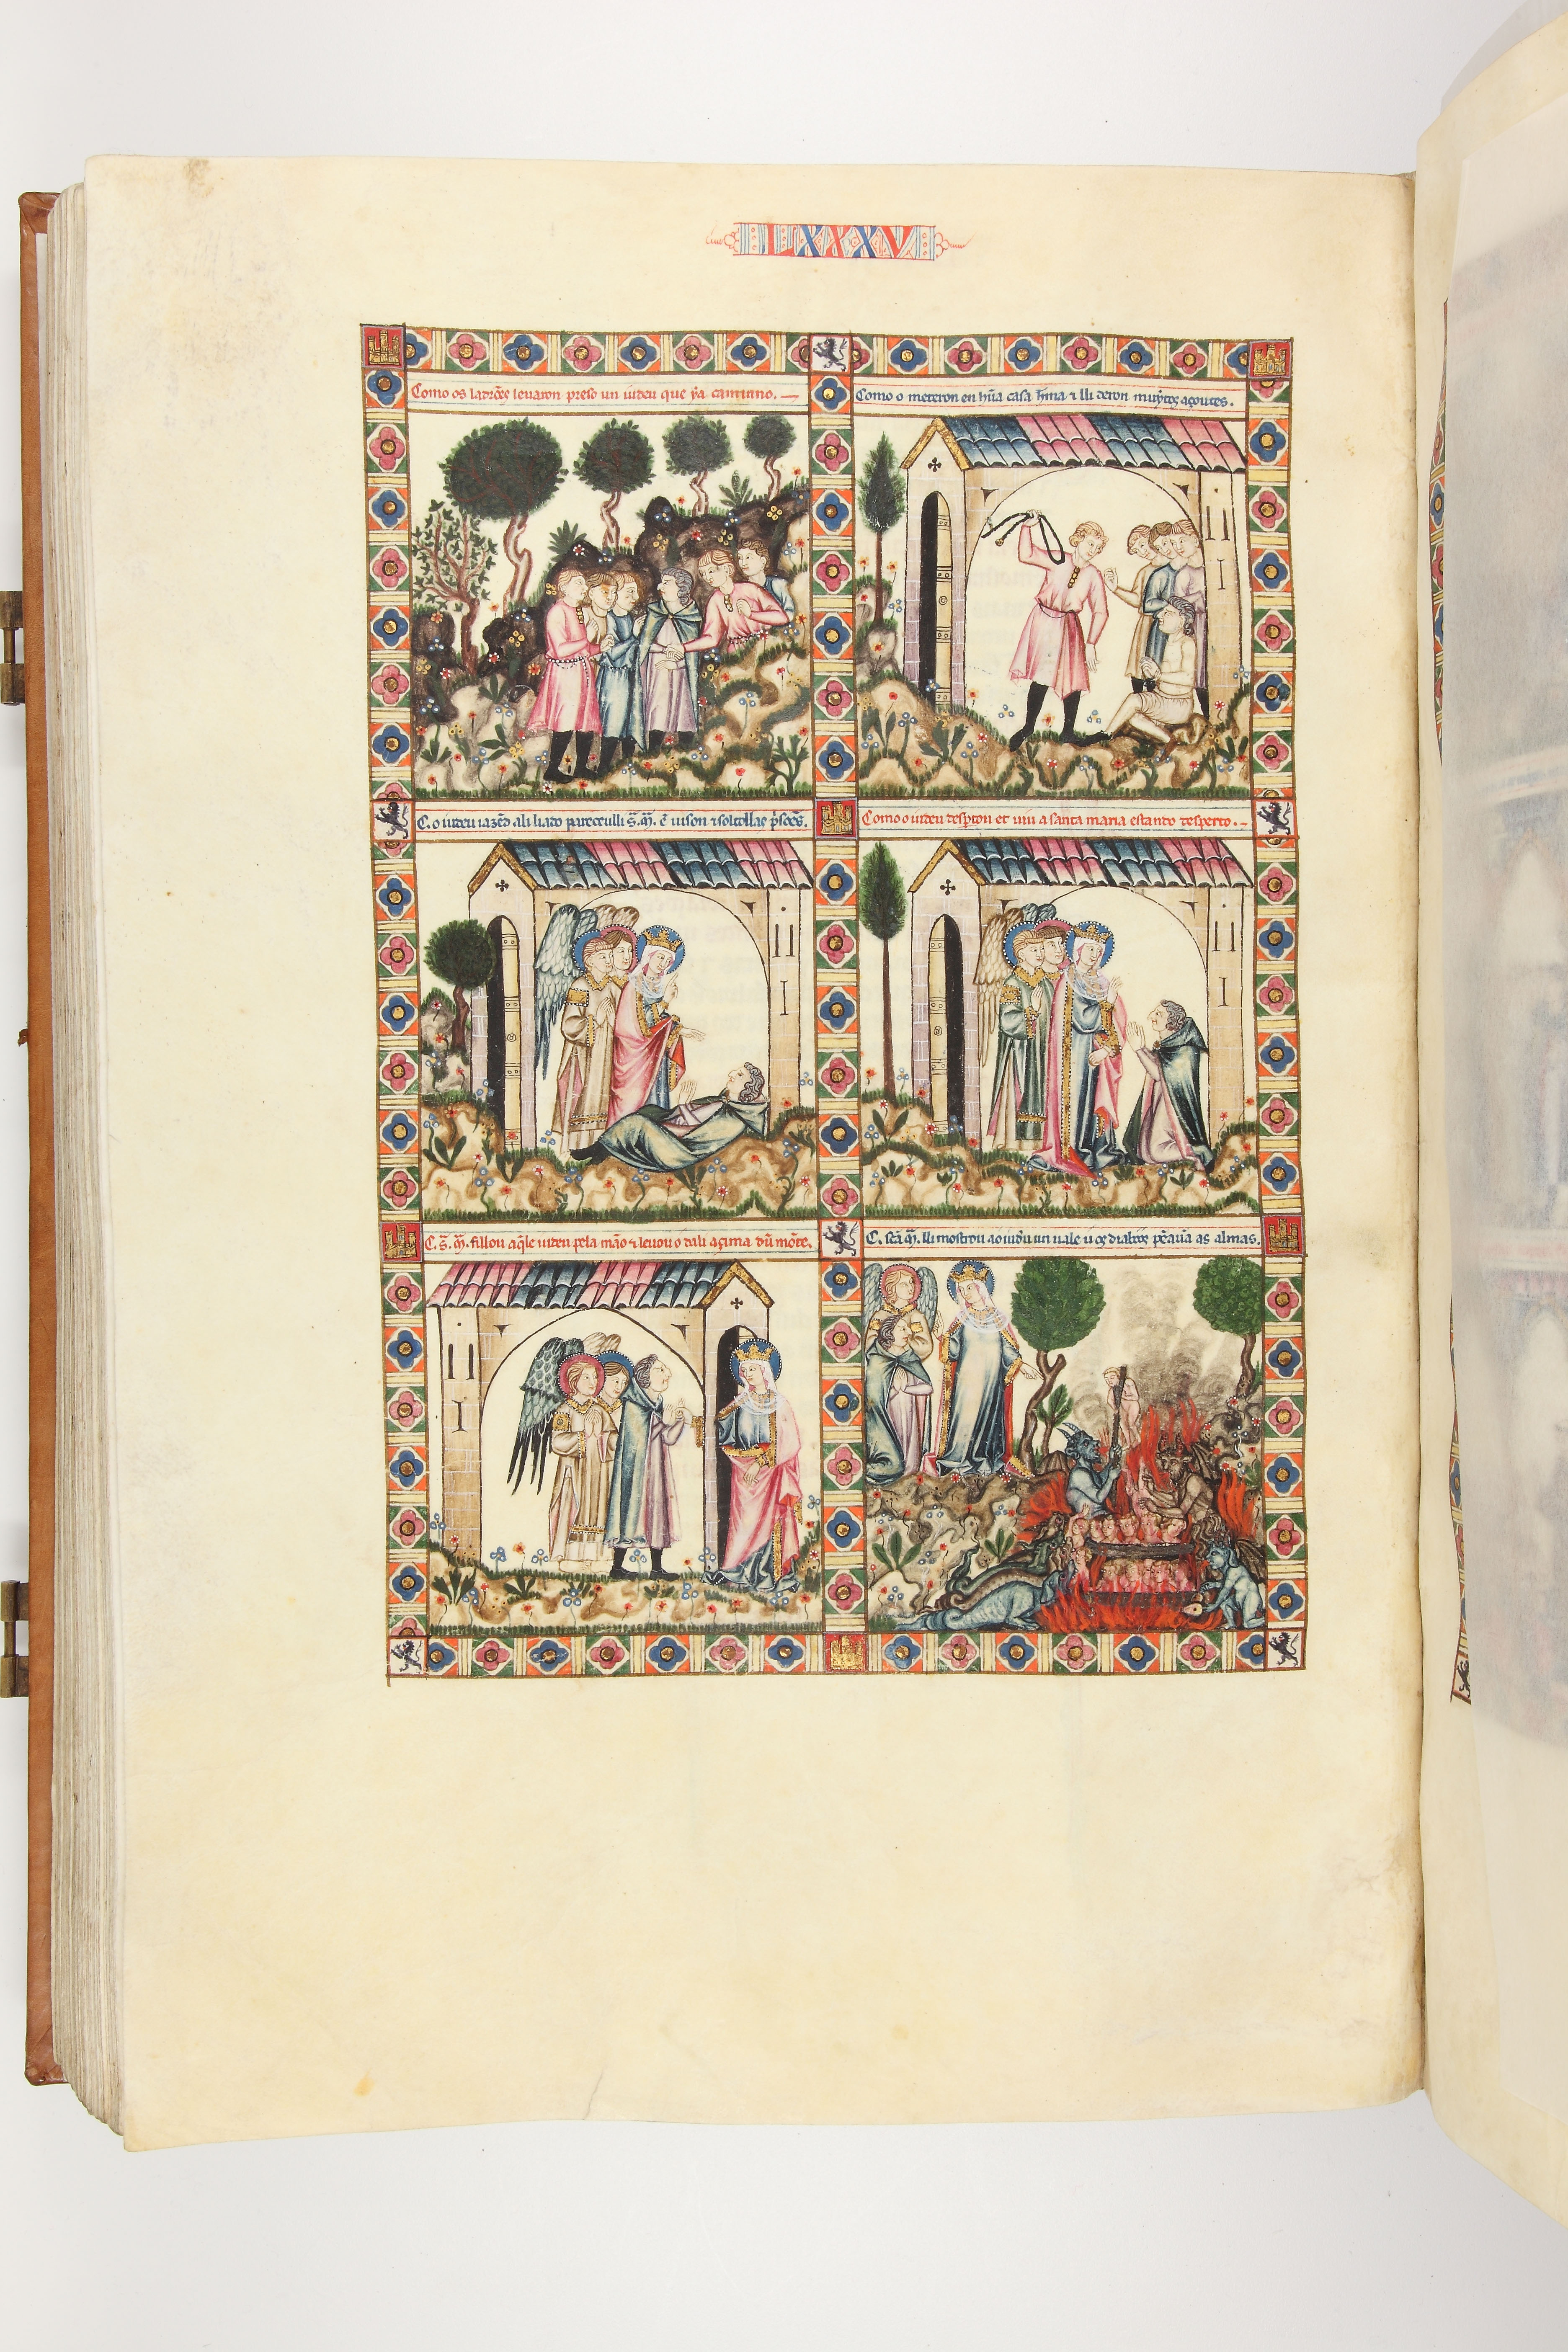 LXXXV
Como os ladrões levaron preso un iudeu que ya camino.
Como o meteron en hũa casa h̃ma ⁊ lli deron muỹtos açoutes.
C. o iudeu iazẽdo ali liado pareceulli s̃. m̃. ẽ uison ⁊ soltollas p̃sões.
Como o iudeu desp̃tou et uiu a santa maria estando desperto.
C. s̃. m̃. fillou aq̃le iudeu pela mão ⁊ levou o dali açima dũ mõte.
C. sc̃a m̃. lli mostrou ao iudeu un uale u os diabõos pẽauã as almas.